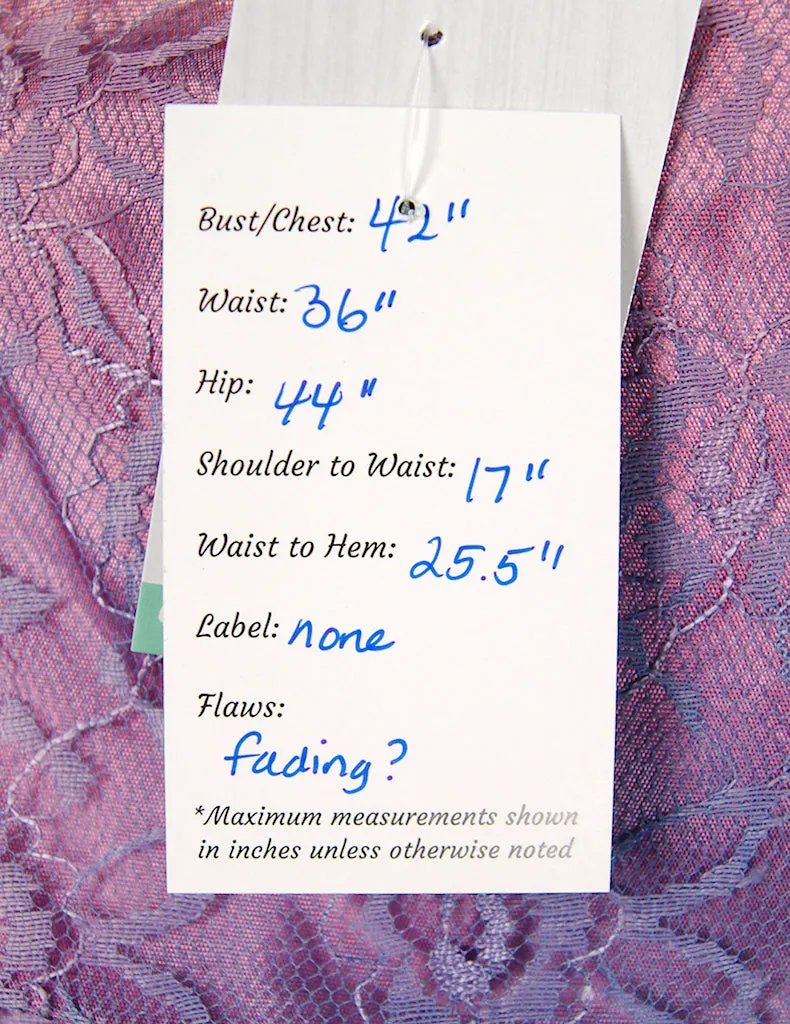 Bust/Chest: 42"
Waist: 36"
Hip: 44"
Shoulder to Waist: 17"
Waist to Hem: 25.5"
Label: none
Flaws:
fading?
*Maximum measurements shown
in inches unless otherwise noted